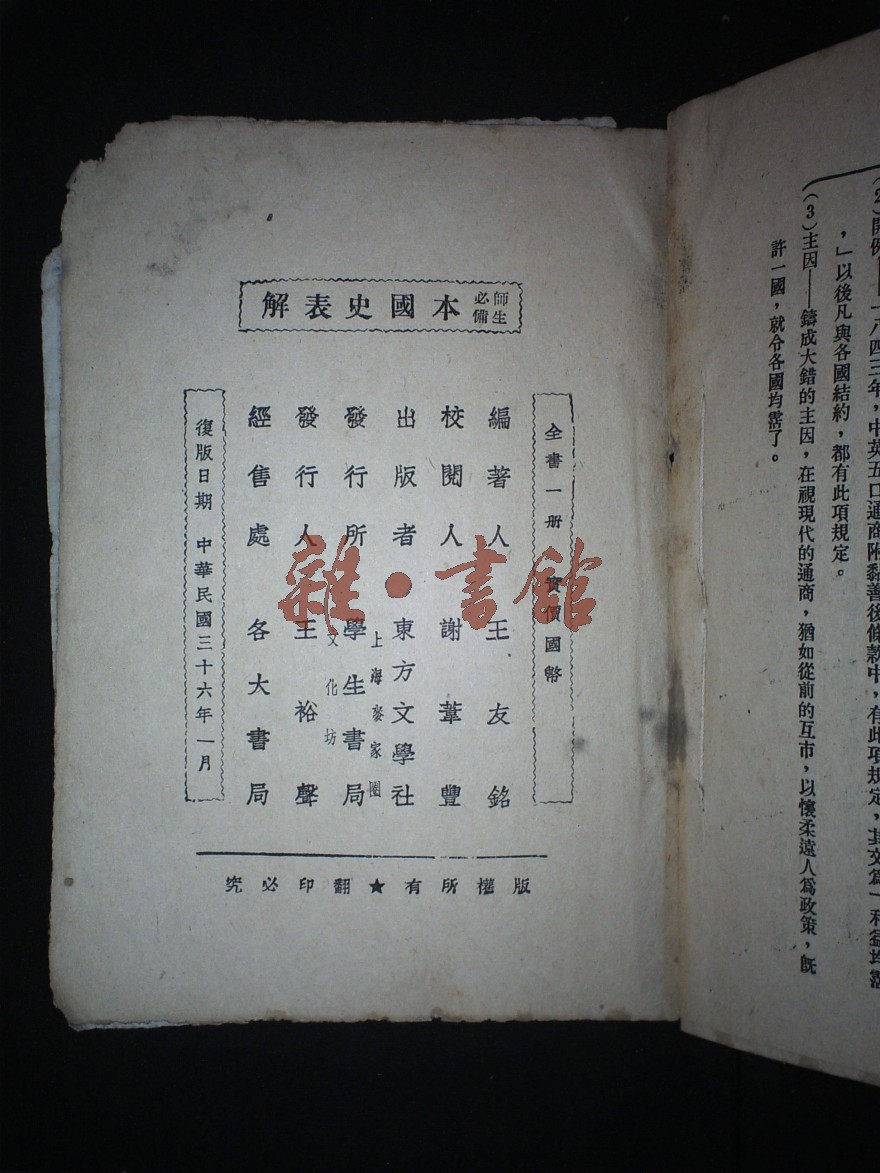 (2)開例
一八四三年,中英五口通商附黏善後條款中,有此項規定,其文爲「利益均霑
,」以後凡與各國結約,都有此項規定。
(3)主因——鑄成大錯的主因,在視現代的通商,猶如從前的互市,以懷柔遠人爲政策,旣
許一國,就令各國均霑了。
師生必備 本國史表解
全書一册 實價國幣
編著人 王友銘
校閱人 謝葦豐
出版者 東方文學社
發行所 學生書局
上海麥家圈
文化坊
發行人 王裕聲
經售處 各大書局
復版日期 中華民國三十六年一月
版權所有★翻印必究
雜·書館